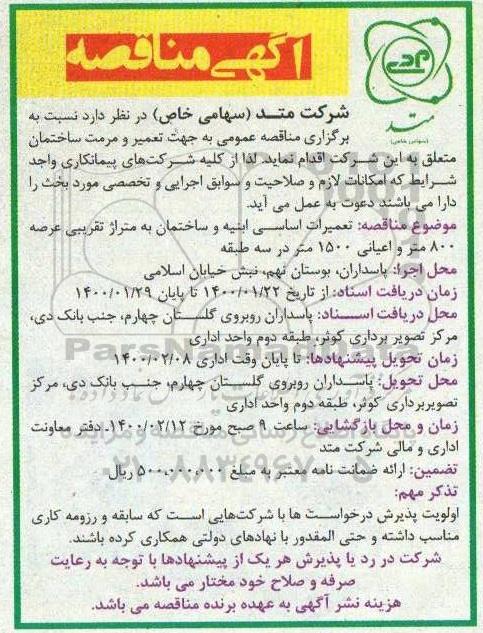 آگهی مناقصه
متد
(سهامی خاص)
شرکت متد (سهامی خاص) در نظر دارد نسبت به
برگزاری مناقصه عمومی به جهت تعمیر و مرمت ساختمان
متعلق به این شرکت اقدام نماید. لذا از کلیه شرکت‌های پیمانکاری واجد
شرایط که امکانات لازم و صلاحیت و سوابق اجرایی و تخصصی مورد بحث را
دارا می باشند دعوت به عمل می آید.
موضوع مناقصه: تعمیرات اساسی ابنیه و ساختمان به متراژ تقریبی عرصه
۸۰۰ متر و اعیانی ۱۵۰۰ متر در سه طبقه
محل اجرا: پاسداران، بوستان نهم، نبش خیابان اسلامی
زمان دریافت اسناد: از تاریخ ۱۴۰۰/۰۱/۲۲ تا پایان ۱۴۰۰/۰۱/۲۹
محل دریافت اسناد: پاسداران روبروی گلستان چهارم، جنب بانک دی،
مرکز تصویر برداری کوثر، طبقه دوم واحد اداری
زمان تحویل پیشنهادها: تا پایان وقت اداری ۱۴۰۰/۰۲/۰۸
محل تحویل: پاسداران روبروی گلستان چهارم، جنب بانک دی، مرکز
تصویربرداری کوثر، طبقه دوم واحد اداری
زمان و محل بازگشایی: ساعت ۹ صبح مورخ ۱۴۰۰/۰۲/۱۲. دفتر معاونت
اداری و مالی شرکت متد
تضمین: ارائه ضمانت نامه معتبر به مبلغ ۵۰۰،۰۰۰،۰۰۰ ریال
تذکر مهم:
اولویت پذیرش درخواست ها با شرکت‌هایی است که سابقه و رزومه کاری
مناسب داشته و حتی المقدور با نهادهای دولتی همکاری کرده باشند.
شرکت در رد یا پذیرش هر یک از پیشنهادها با توجه به رعایت
صرفه و صلاح خود مختار می باشد.
هزینه نشر آگهی به عهده برنده مناقصه می باشد.
۰۲۱-۸۸۳۴۹۶۷۰